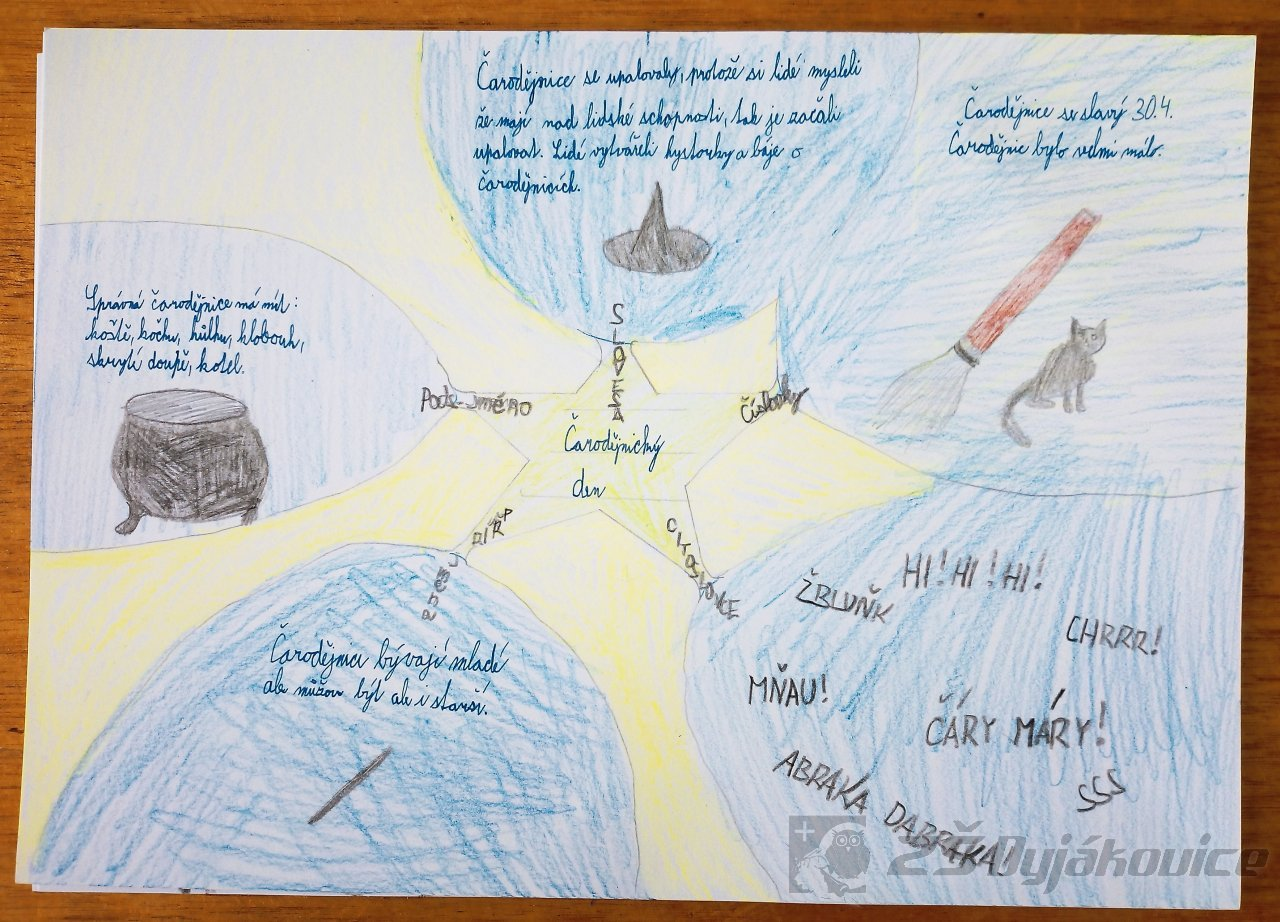 Čarodějnice se upalovaly, protože si lidé mysleli
že mají nad lidské schopnosti, tak je začali
upalovat. Lidé vytvářeli hystorky a báje o
čarodějnicích.
Čarodějnice se slavý 30.4.
Čarodějnic bylo velmi málo.
Správná čarodějnice má mít:
koště, kočku, hůlku, klobouk,
skrytí doupě, kotel.
SLOVESA
Pods-Jméno
Číslovky
Čarodějnický
den
PŘÍD
CITOSLOVCE
Čarodějnice bývají mladé
ale můžou být ale i starší.
HI! HI! HI!
ŽBLUŇK
CHRRR!
MŇAU!
ČÁRY MÁRY!
SSS
ABRAKA DABRAKA!
ZŠ Dyjákovice